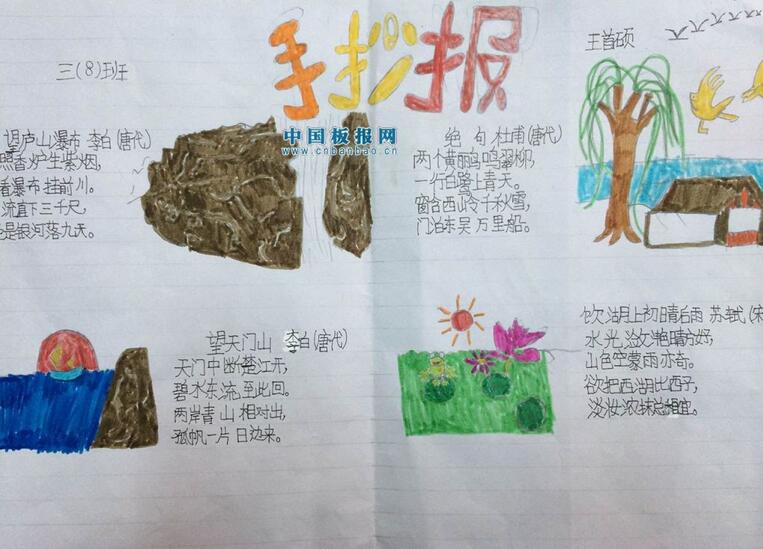 手抄报
三(8)班
王首硕
中国板报网
www.cnbanbao.cn
望庐山瀑布 李白(唐代)
照香炉生紫烟,
看瀑布挂前川。
流直下三千尺,
是银河落九天。
绝句 杜甫(唐代)
两个黄鹂鸣翠柳,
一行白鹭上青天。
窗含西岭千秋雪,
门泊东吴万里船。
望天门山 李白(唐代)
天门中断楚江开,
碧水东流至此回。
两岸青山相对出,
孤帆一片日边来。
饮湖上初晴后雨 苏轼(宋
水光潋滟晴方好,
山色空蒙雨亦奇。
欲把西湖比西子,
淡妆浓抹总相宜。